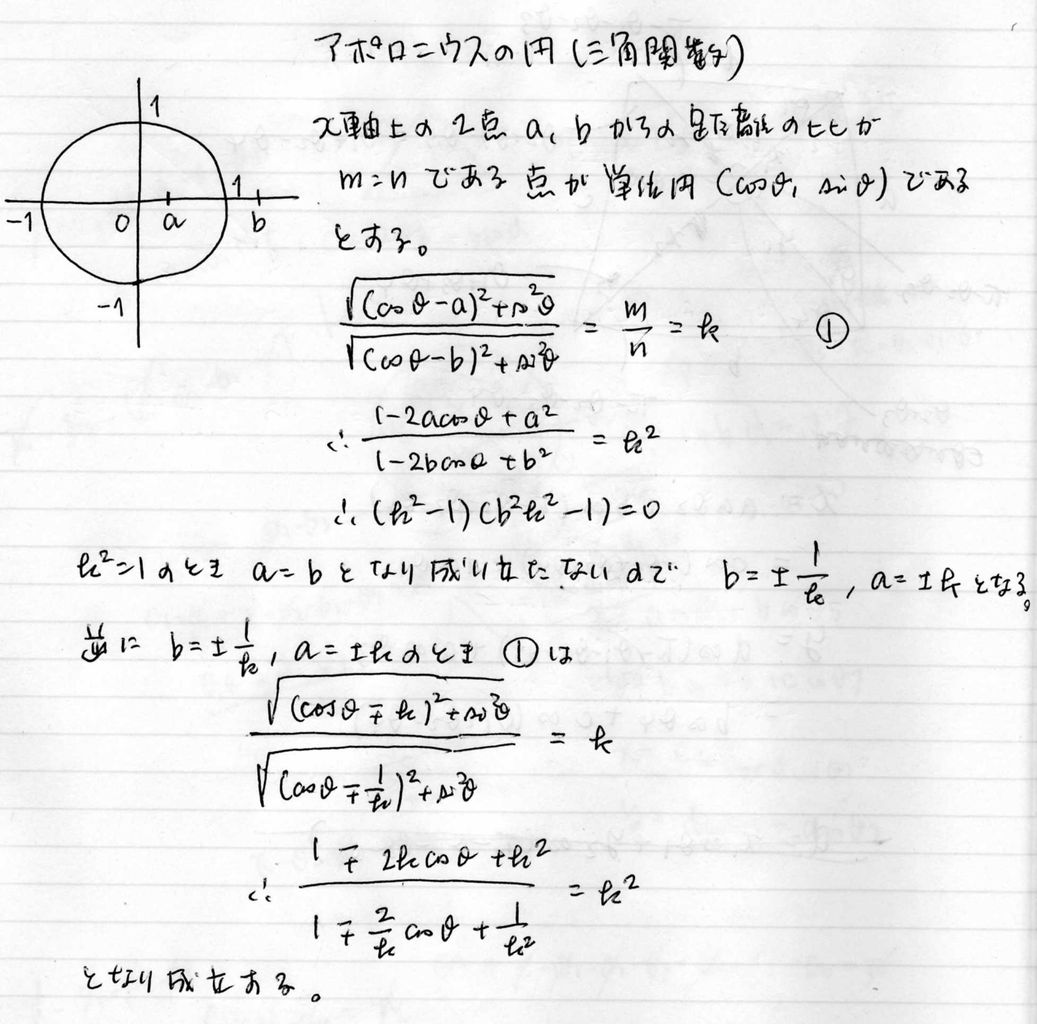 アポロニウスの円(三角関数)
x軸上の2点 a, b からの距離の比が
m:n である点が単位円 (cosθ, sinθ) である
とする。
1
-1 0 a 1 b
-1
√((cosθ-a)²+sin²θ) / √((cosθ-b)²+sin²θ) = m/n = k ①
∴ (1-2acosθ+a²)/(1-2bcosθ+b²) = k²
∴ (k²-1)(b²k²-1)=0
k²=1のとき a=b となり成り立たないので b=±1/k, a=±k となる。
逆に b=±1/k, a=±k のとき ①は
√((cosθ∓k)²+sin²θ) / √((cosθ∓1/k)²+sin²θ) = k
∴ (1∓2kcosθ+k²)/(1∓(2/k)cosθ+1/k²) = k²
となり成立する。